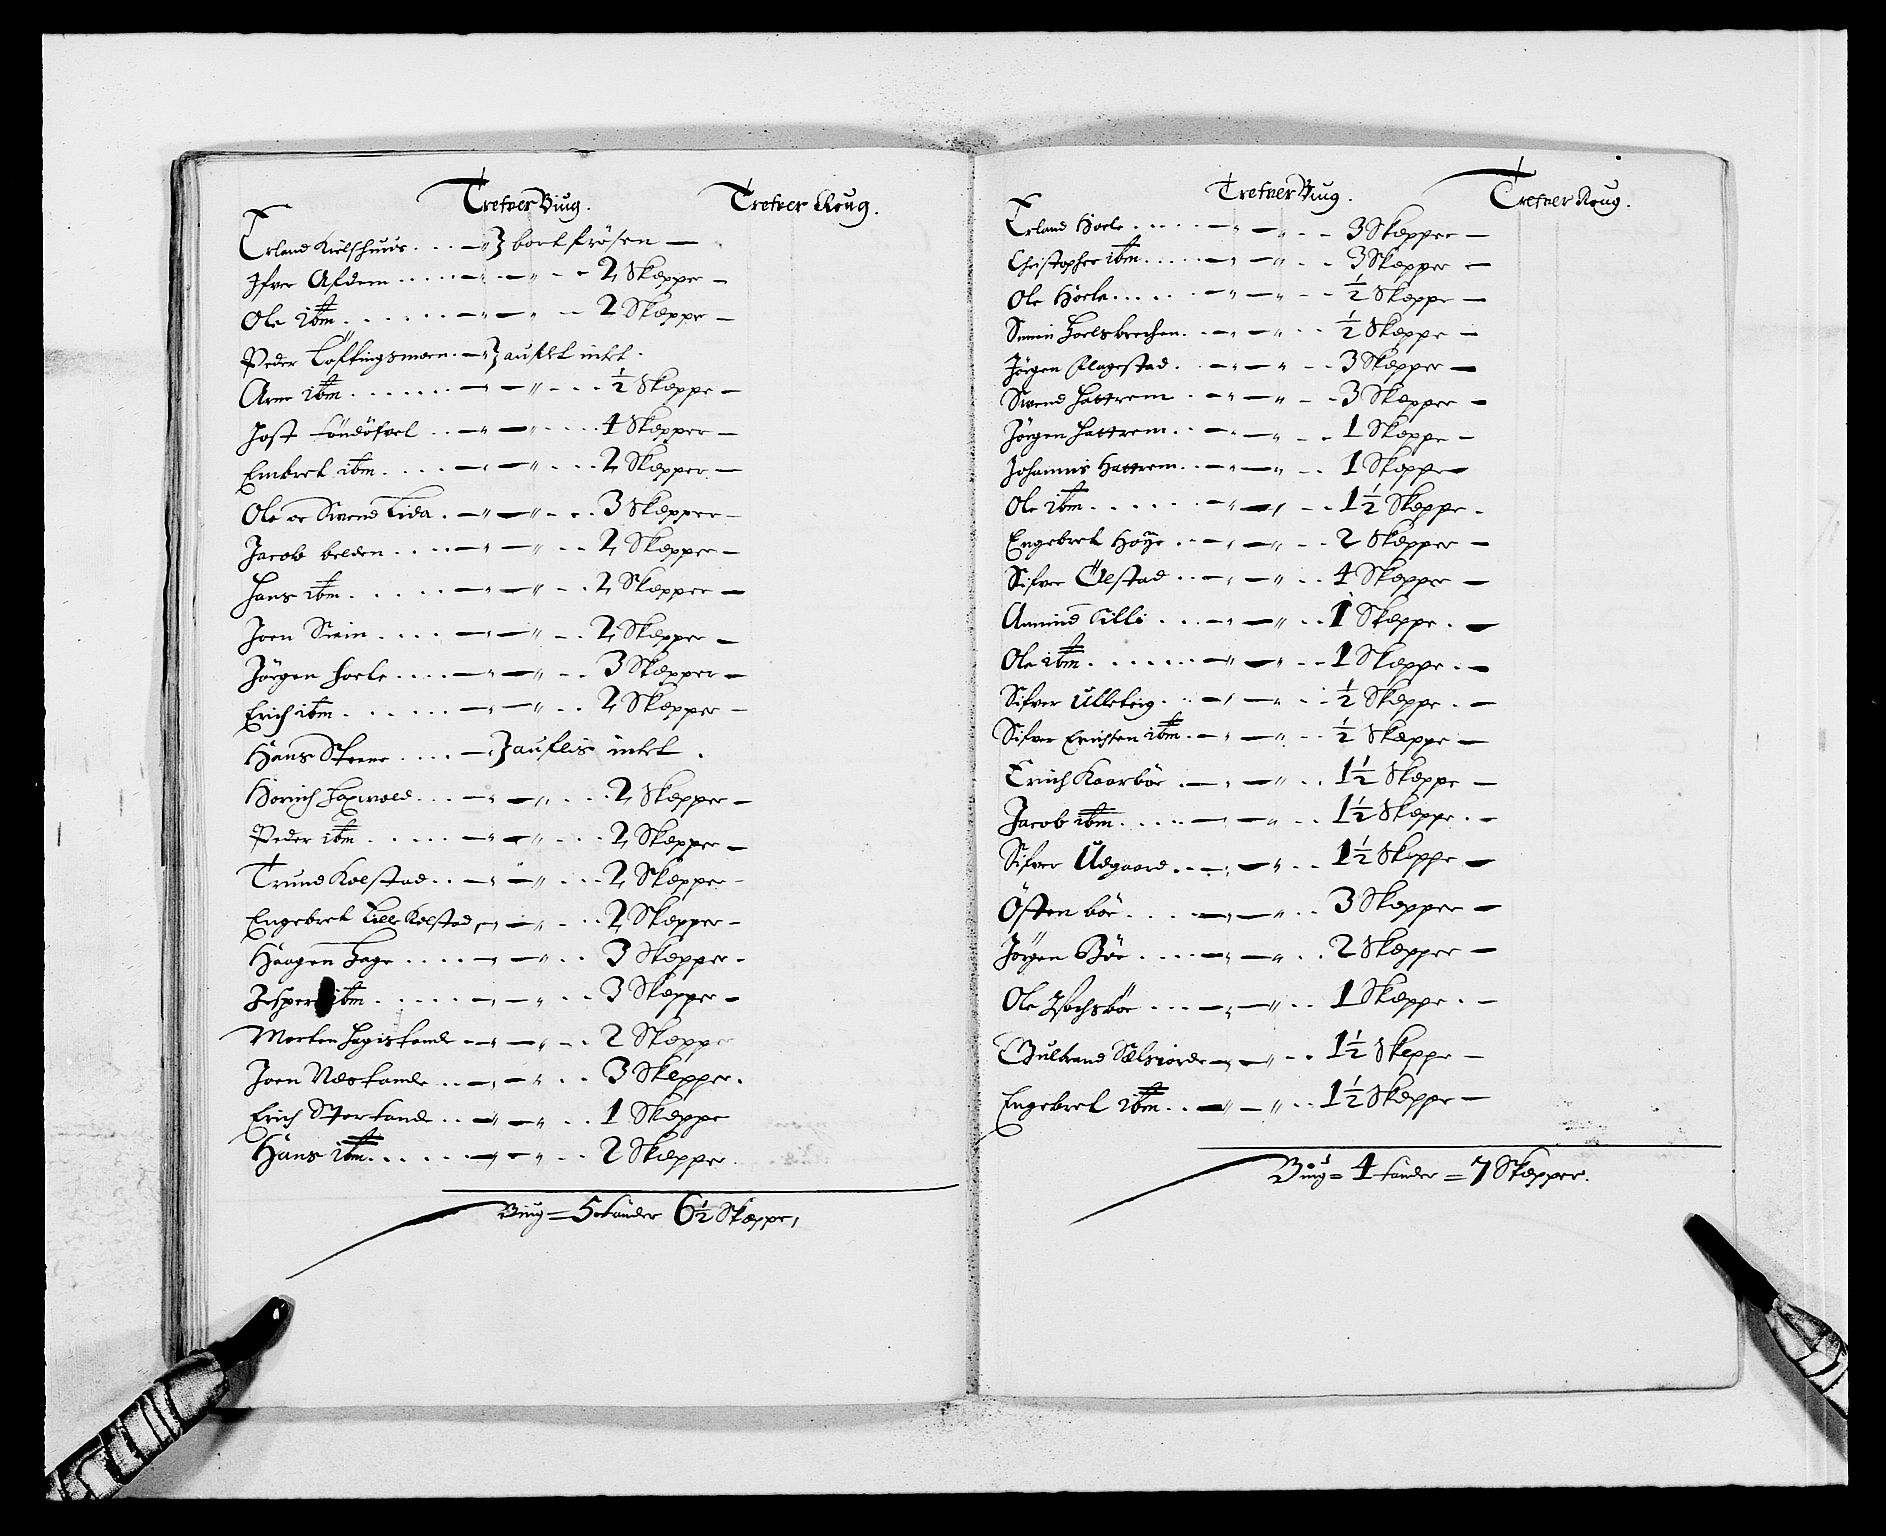 Trefver Biug. Trefver Roug.
Erland Kielshuus . . . — " } bortfrösen —
Ifver Afdem . . . . . — " — " - - 2 Skepper —
Ole ibm . . . . . . — " — " - - 2 Skepper —
Peder Löftingsmoen . — " } auflet intet .
Arne ibm . . . . . . — " — " - . . ½ Skeppe —
Jost . . — " — " . . . . 4 Skepper —
Embret ibm . . . . — " — " . . . 2 Skepper . —
Ole oc Svend Lida . — " — " - . . 3 Skepper —
Jacob belden . . . . — " — " . . . 2 Skepper —
Hans ibm . . . . . — " — " . . . 2 Skepper —
Joen Stein . . . . — " — " . — . 2 Skepper —
Jörgen Hoele . . . . — " — " . . . 3 Skepper —
Erich ibm . . . . . . — " — " . . . 2 Skepper —
Hans Steene . . . . — " } auflis intet .
Hörich Laxvold . . . — " — " . . . . 2 Skepper —
Peder ibm . . . . . — " — " . . . 2 Skepper —
Trund Kolstad . . — " — " . . . . 2 Skepper -
Engebret Lille Kolstad , — " — " . . . 2 Skepper —
Haagen Hage . . . . — " — " . . . 3 Skepper -
Jesper ibm . . . . . — " — " . . . 3 Skepper —
Morten Hagistande — " — " . — . 2 Skepper
Joen Nestande . . — " — " . . . 3 Skepper .
Erich Storstande . . — " — " . . . 1 Skeppe
Hans ibm . . . . . — " — " . . . 2 Skepper .
Biug = 5 tönder 6½ Skeppe ,
Trefver Biug . Trefver Roug .
Erland Hoele . . . . . — " — " . - - 3 Skepper —
Christopher ibm . . . . . — " — " . - - 3 Skepper —
Ole Hoele . . . . . — " — " - - ½ Skeppe —
Simen Hoelsbrechen . . — " — " . . ½ Skeppe —
Jörgen Flagestad . . — " — " . - - 3 Skepper —
Svend Hattrem . . — " — " . — . 3 Skepper —
Jörgen Hattrem . . — " — " . . — 1 Skeppe —
Johannis Hattrem . . — " — " . . . 1 Skeppe —
Ole ibm . . . . . . — " — " . — 1½ Skeppe .
Engebret Höye . . — " — " . — — 2 Skepper —
Sifver Ölstad . . — " — " . . . 4 Skepper —
Amund Lilli . . . — " — " . . . 1 Skeppe . —
Ole ibm . . . . . . — " — " . — 1 Skeppe . —
Sifver Ulleberg . . — " — " . . . ½ Skeppe . —
Sifver Erichsen ibm . — " — " . . . ½ Skeppe —
Erich Kaarböe . — " — " . . 1½ Skeppe —
Jacob ibm . . . . . — " — " . . . 1½ Skeppe . —
Sifver Udgaard . — . , — " . . 1½ Skeppe —
Östen böe . . . . — " — " . . 3 Skepper —
Jörgen Böe . . . . — " — " . . 2 Skepper —
Ole . . . — " — " . . . 1 Skeppe . —
Gulbrand Selsiorde — " — " . . . 1½ Skeppe —
Engebret ibm . . — " — " . . . 1½ Skeppe —
Biug = 4 tönder = 7 Skepper .